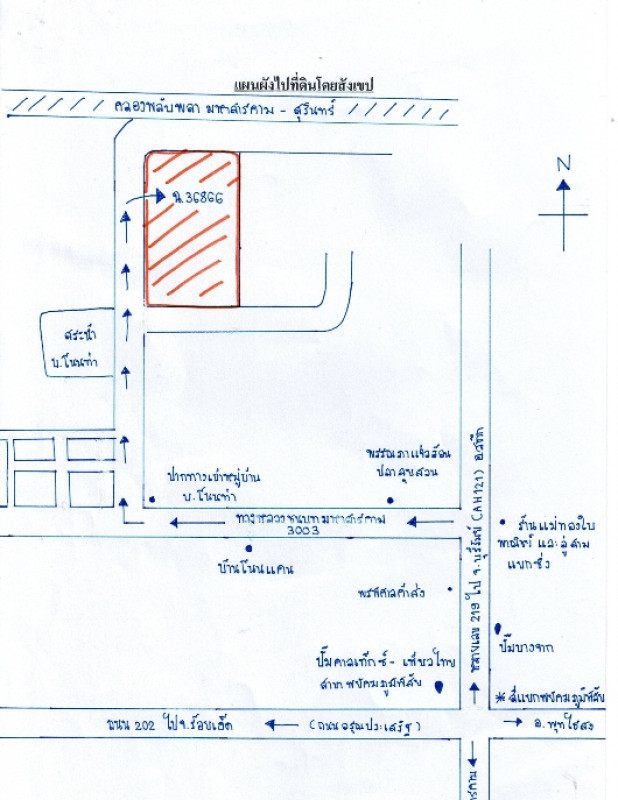 แผนผังไปที่ดินโดยสังเขป
คลองพลับพลา มหาสารคาม - สุรินทร์
N
ฉ.36866
สระน้ำ
บ.โนนท่า
พรรณภาแจ่วฮ้อน
ปลาลุยสวน
ปากทางเข้าหมู่บ้าน
บ.โนนท่า
ทางหลวงชนบท มหาสารคาม
3003
ทางหลวง 219 ไป จ.บุรีรัมย์ (AH121)
ร้านแม่ทองใบ
พาณิชย์ และอู่สาม
แยกซิ่ง
บ้านโนนแคน
พรพิศาลค้าส่ง
ปั๊มบางจาก
ปั๊มคาลเท็กซ์ - เพียวไทย
สาขาพยัคฆภูมิพิสัย
* สี่แยกพยัคฆภูมิพิสัย
ถนน 202 ไป จ.ร้อยเอ็ด
(ถนนอรุณประเสริฐ)
อ.พุทไธสง